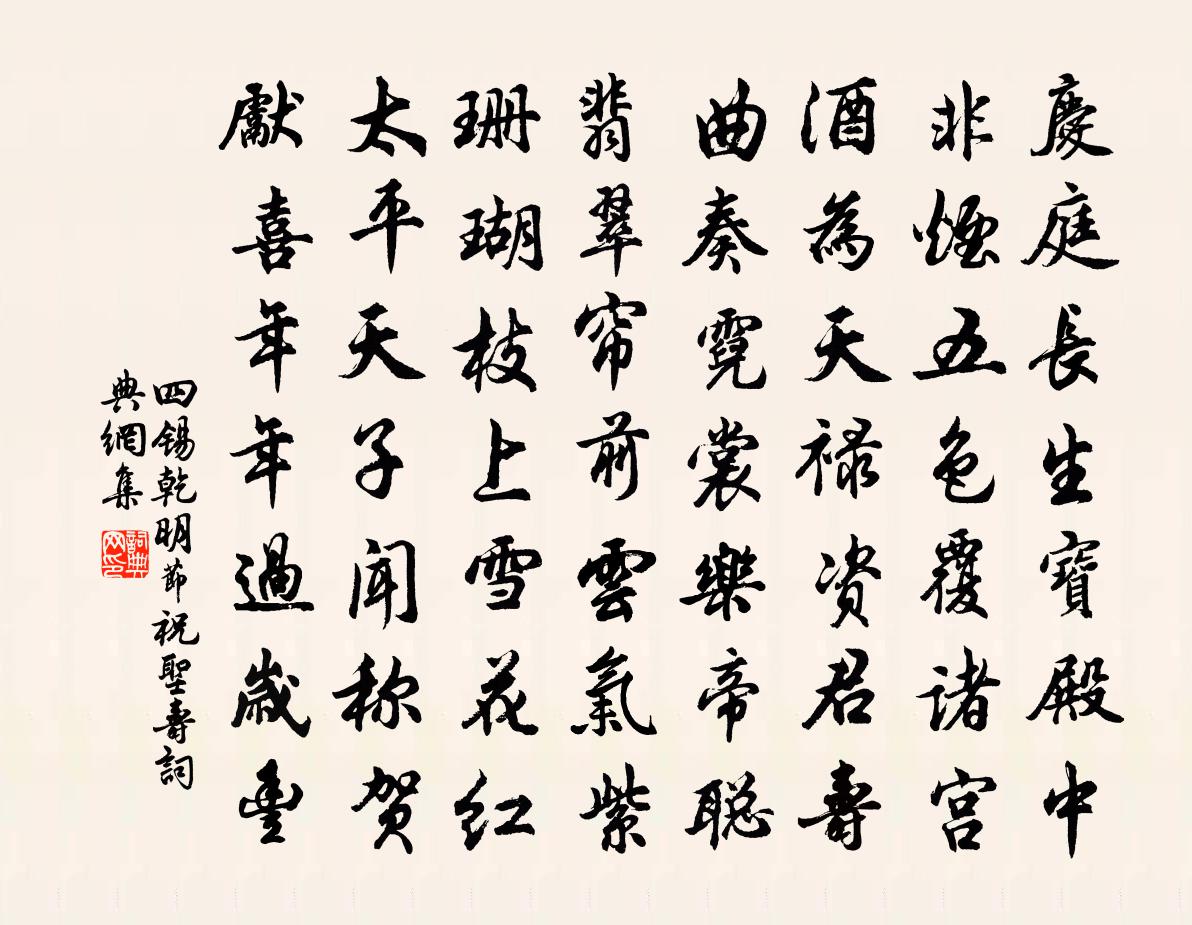 慶庭長生寶殿中
非煙五色覆诸宫
酒為天禄资君壽
曲奏霓裳樂帝聪
翡翠帘前雲氣紫
珊瑚枝上雪花红
太平天子闻称贺
獻喜年年過歲豊
四锡乾明節祝聖壽詞
典網集
詞典网印